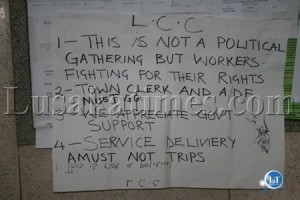 L.C.C
1 - THIS IS NOT A POLITICAL
GATHERING BUT WORKERS
FIGHTING FOR THEIR RIGHTS
2 - TOWN CLERK AND A.D.F
MUST GO
3 - WE APPRECIATE GOVT
SUPPORT
4 - SERVICE DELIVERY
AMUST NOT TRIPS
Lusakatimes.com
LT